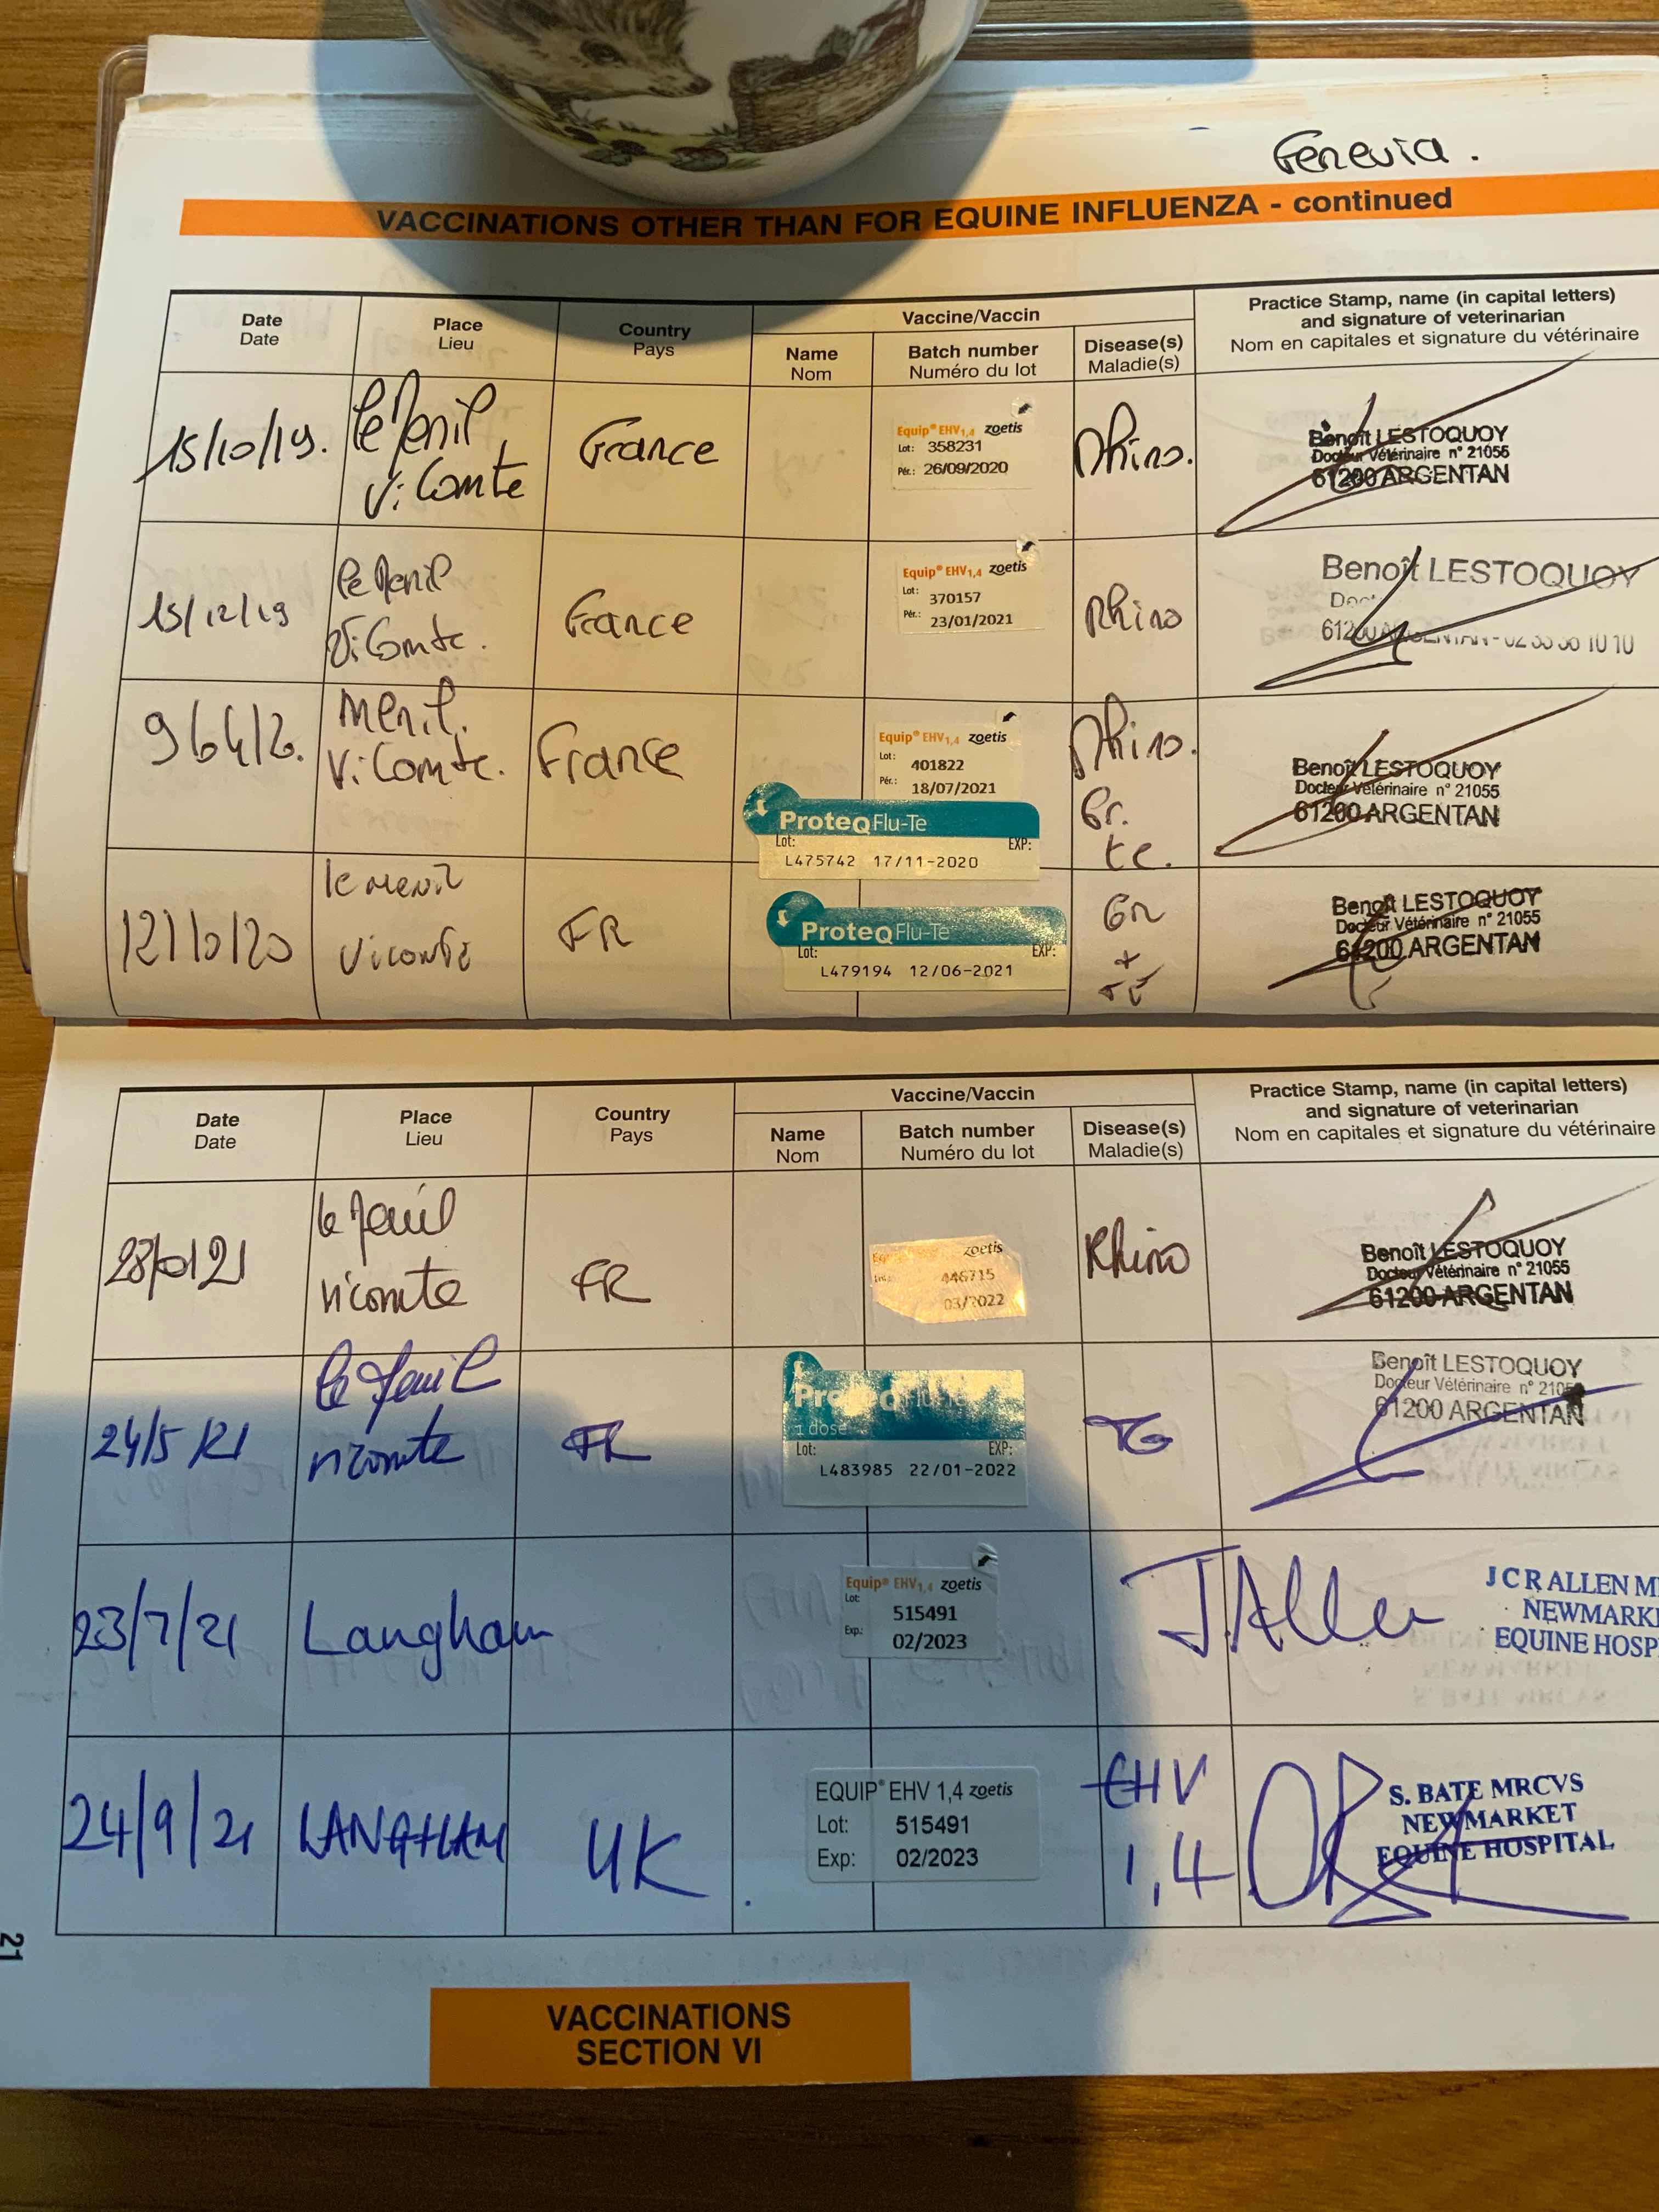 Genevia.
VACCINATIONS OTHER THAN FOR EQUINE INFLUENZA - continued
Date
Date
Place
Lieu
Country
Pays
Vaccine/Vaccin
Name
Nom
Batch number
Numéro du lot
Disease(s)
Maladie(s)
Practice Stamp, name (in capital letters)
and signature of veterinarian
Nom en capitales et signature du vétérinaire
15/10/19.
le Menil
Vicomte
France
Equip® EHV1,4 zoetis
Lot: 358231
Pér.: 26/09/2020
Rhino.
Benoît LESTOQUOY
Docteur Vétérinaire n° 21055
61200 ARGENTAN
15/12/19
le Menil
Vicomte.
France
Equip® EHV1,4 zoetis
Lot: 370157
Pér.: 23/01/2021
Rhino
Benoît LESTOQUOY
61200 ARGENTAN - 02 33 36 10 10
Menil.
Vicomte.
France
Equip® EHV1,4 zoetis
Lot: 401822
Pér.: 18/07/2021
ProteqFlu-Te
Lot: EXP:
L475742 17/11-2020
Rhino.
Gr.
te.
Benoît LESTOQUOY
Docteur Vétérinaire n° 21055
61200 ARGENTAN
12/10/20
le Menil
Vicomte
FR
ProteqFlu-Te
Lot: EXP:
L479194 12/06-2021
Gr
+
Benoît LESTOQUOY
Docteur Vétérinaire n° 21055
61200 ARGENTAN
Date
Date
Place
Lieu
Country
Pays
Vaccine/Vaccin
Name
Nom
Batch number
Numéro du lot
Disease(s)
Maladie(s)
Practice Stamp, name (in capital letters)
and signature of veterinarian
Nom en capitales et signature du vétérinaire
le Menil
vicomte
FR
zoetis
446715
03/2022
Rhino
Benoît LESTOQUOY
Docteur Vétérinaire n° 21055
61200 ARGENTAN
24/5/21
le Menil
vicomte
FR
ProteqFlu-Te
1 dose
Lot: EXP:
L483985 22/01-2022
TG
Benoît LESTOQUOY
Docteur Vétérinaire n° 2105
61200 ARGENTAN
23/7/21
Langham
Equip® EHV1,4 zoetis
Lot: 515491
Exp: 02/2023
JAllen
J C R ALLEN M
NEWMARK
EQUINE HOSP
24/9/21
LANGHAM
UK
EQUIP® EHV 1,4 zoetis
Lot: 515491
Exp: 02/2023
EHV
1,4
S. BATE MRCVS
NEWMARKET
EQUINE HOSPITAL
21
VACCINATIONS
SECTION VI